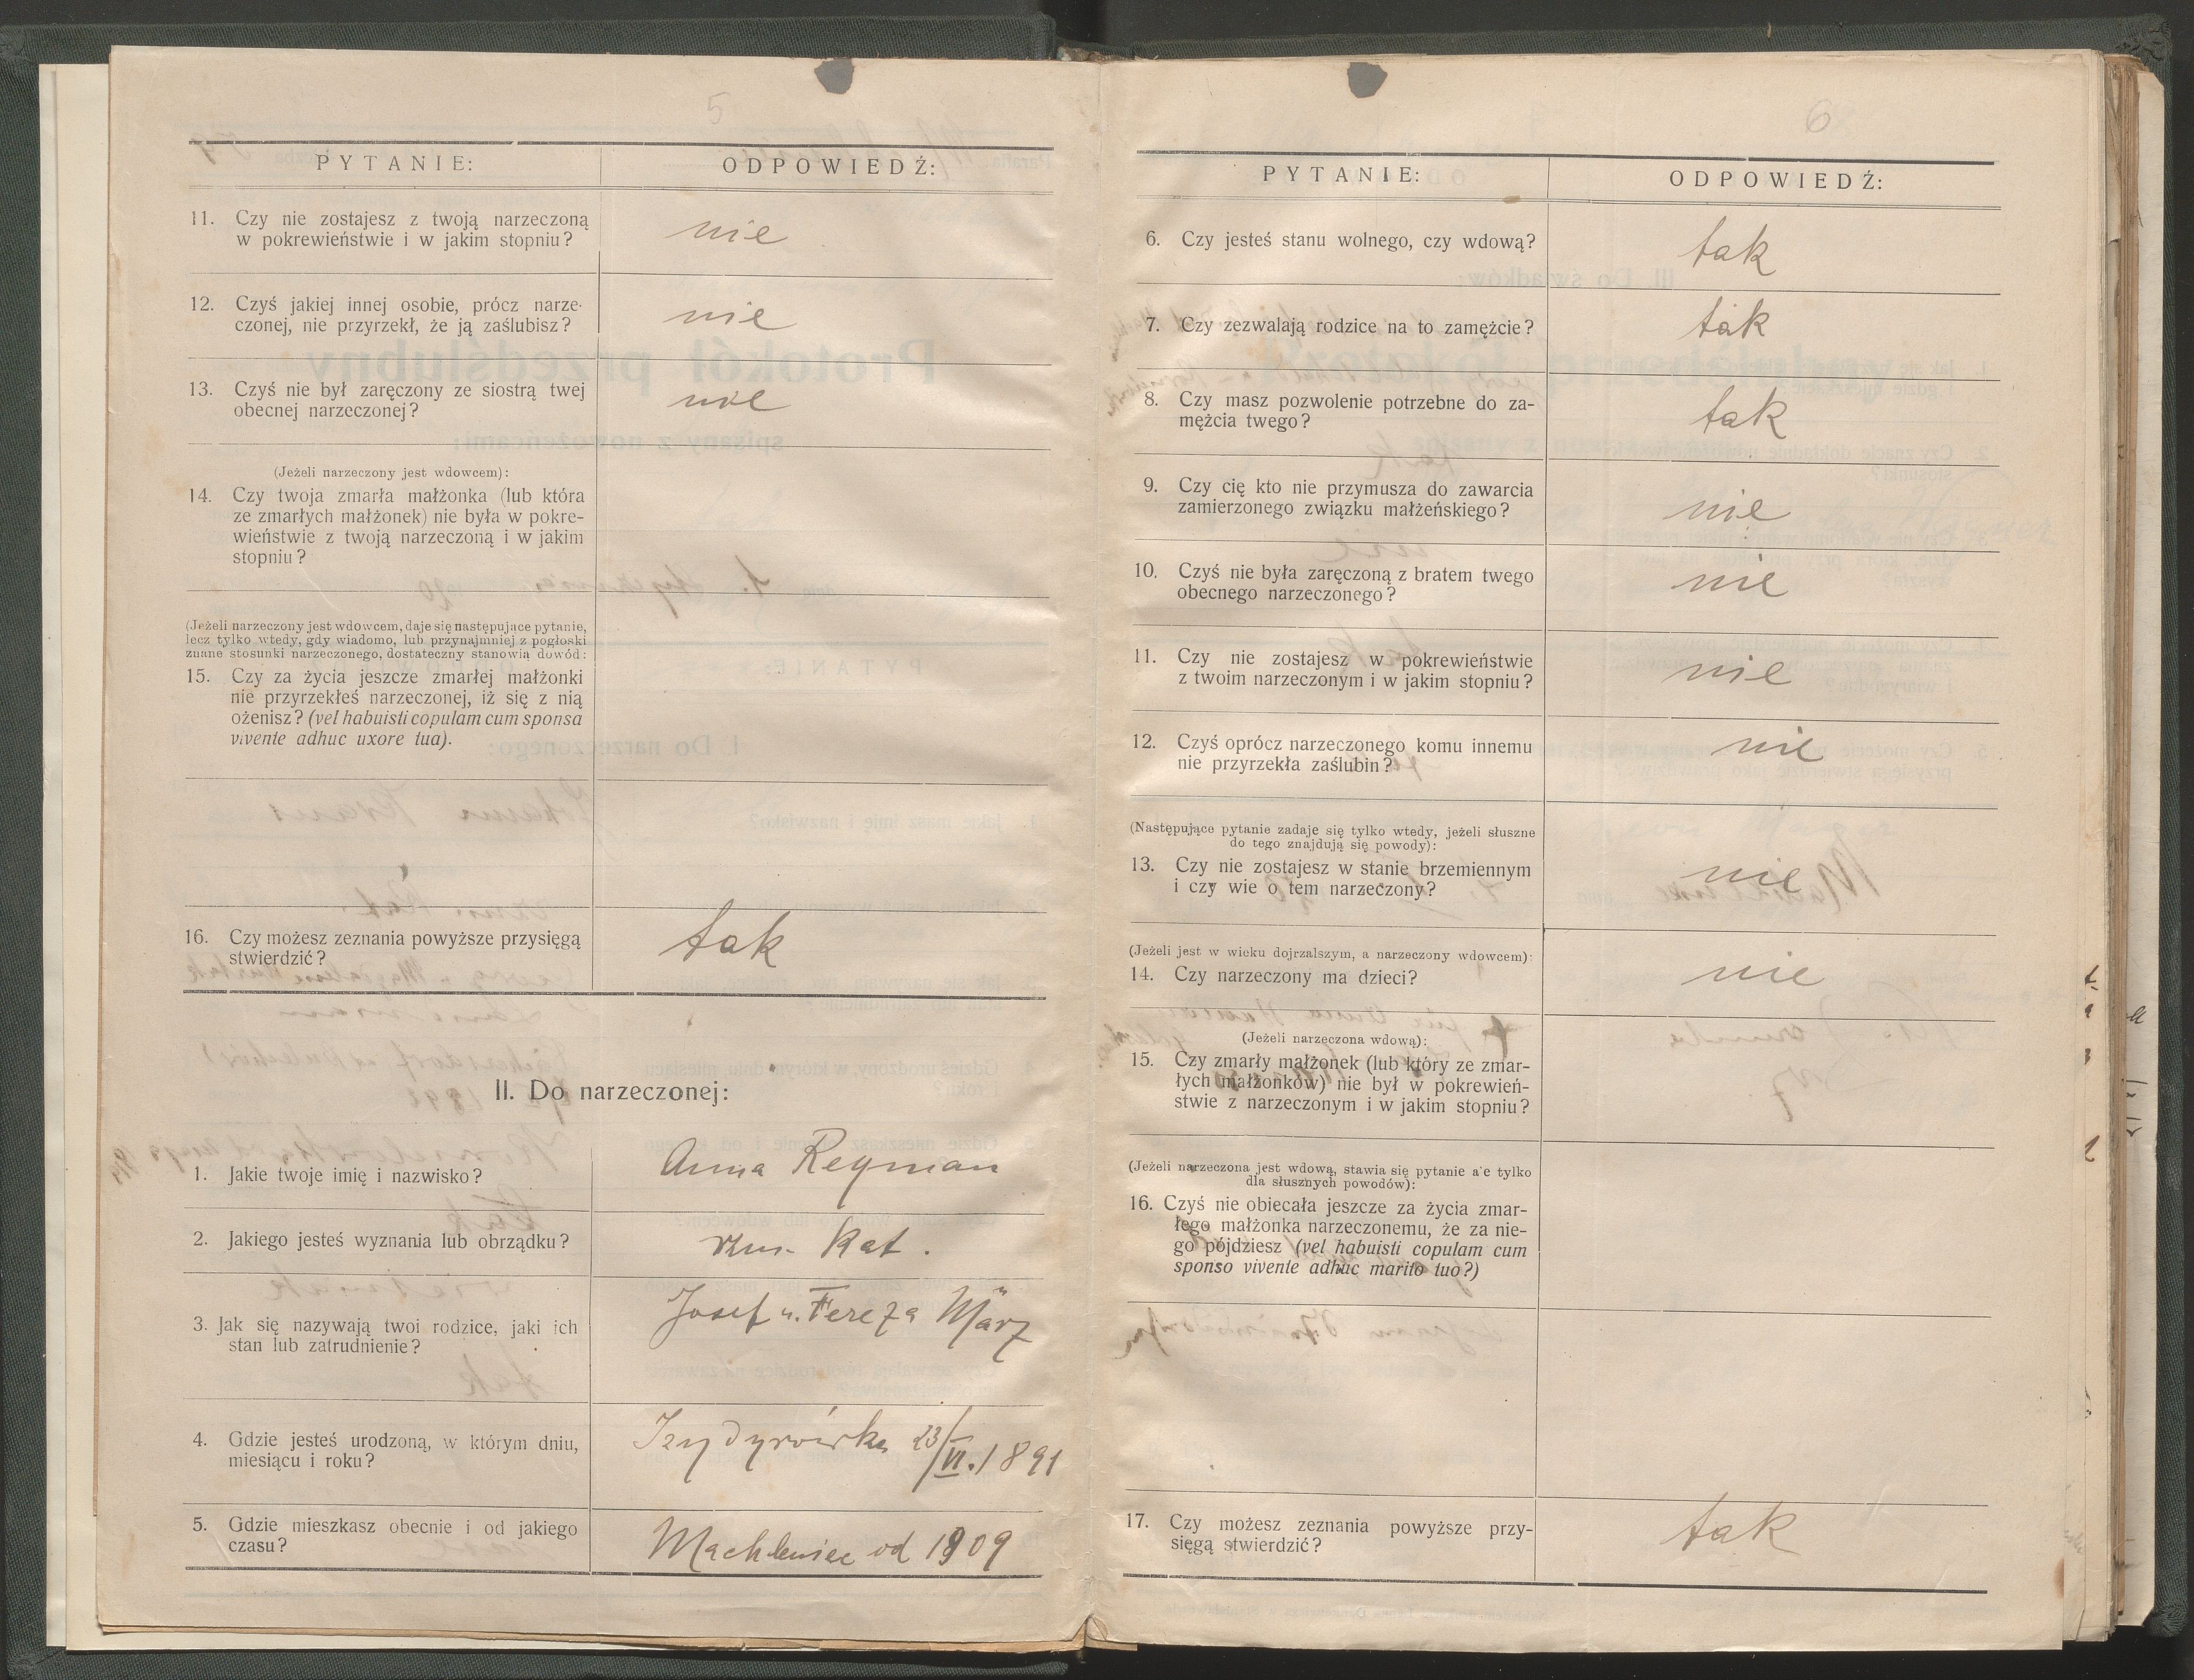 5
PYTANIE: ODPOWIEDŹ:
11. Czy nie zostajesz z twoją narzeczoną
w pokrewieństwie i w jakim stopniu?
nie
12. Czyś jakiej innej osobie, prócz narze-
czonej, nie przyrzekł, że ją zaślubisz?
nie
13. Czyś nie był zaręczony ze siostrą twej
obecnej narzeczonej?
nie
(Jeżeli narzeczony jest wdowcem):
14. Czy twoja zmarła małżonka (lub która
ze zmarłych małżonek) nie była w pokre-
wieństwie z twoją narzeczoną i w jakim
stopniu?
(Jeżeli narzeczony jest wdowcem, daje się następujące pytanie,
lecz tylko wtedy, gdy wiadomo, lub przynajmniej z pogłoski
znane stosunki narzeczonego, dostateczny stanowią dowód:
15. Czy za życia jeszcze zmarłej małżonki
nie przyrzekłeś narzeczonej, iż się z nią
ożenisz? (vel habuisti copulam cum sponsa
vivente adhuc uxore tua).
16. Czy możesz zeznania powyższe przysięgą
stwierdzić?
tak
II. Do narzeczonej:
1. Jakie twoje imię i nazwisko?
Anna Reyman
2. Jakiego jesteś wyznania lub obrządku?
rzm. Kat.
3. Jak się nazywają twoi rodzice, jaki ich
stan lub zatrudnienie?
Josef u. Tereza März
4. Gdzie jesteś urodzoną, w którym dniu,
miesiącu i roku?
Izydyrówka 23/VI. 1891
5. Gdzie mieszkasz obecnie i od jakiego
czasu?
Machleniec od 1909
6
PYTANIE: ODPOWIEDŹ:
6. Czy jesteś stanu wolnego, czy wdową?
tak
7. Czy zezwalają rodzice na to zamężcie?
tak
8. Czy masz pozwolenie potrzebne do za-
mężcia twego?
tak
9. Czy cię kto nie przymusza do zawarcia
zamierzonego związku małżeńskiego?
nie
10. Czyś nie była zaręczoną z bratem twego
obecnego narzeczonego?
nie
11. Czy nie zostajesz w pokrewieństwie
z twoim narzeczonym i w jakim stopniu?
nie
12. Czyś oprócz narzeczonego komu innemu
nie przyrzekła zaślubin?
nie
(Następujące pytanie zadaje się tylko wtedy, jeżeli słuszne
do tego znajdują się powody):
13. Czy nie zostajesz w stanie brzemiennym
i czy wie o tem narzeczony?
nie
(Jeżeli jest w wieku dojrzalszym, a narzeczony wdowcem):
14. Czy narzeczony ma dzieci?
nie
(Jeżeli narzeczona wdową):
15. Czy zmarły małżonek (lub który ze zmar-
łych małżonków) nie był w pokrewień-
stwie z narzeczonym i w jakim stopniu?
(Jeżeli narzeczona jest wdową, stawia się pytanie ale tylko
dla słusznych powodów):
16. Czyś nie obiecała jeszcze za życia zmar-
łego małżonka narzeczonemu, że za nie-
go pójdziesz (vel habuisti copulam cum
sponso vivente adhuc marito tuo?)
17. Czy możesz zeznania powyższe przy-
sięgą stwierdzić?
tak